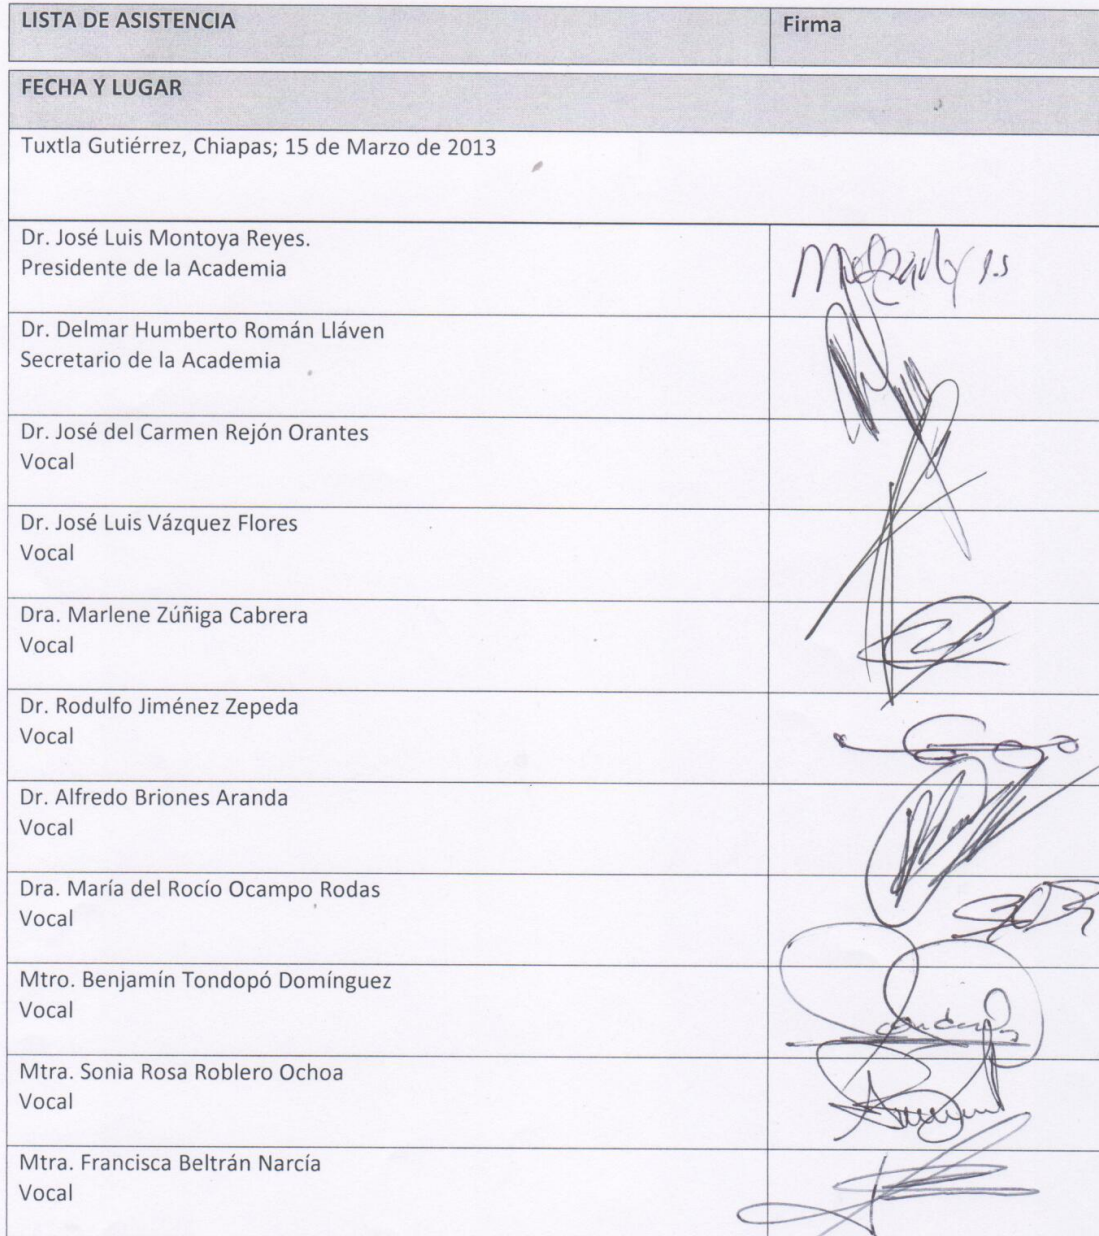 LISTA DE ASISTENCIA
Firma
FECHA Y LUGAR
Tuxtla Gutiérrez, Chiapas; 15 de Marzo de 2013
Dr. José Luis Montoya Reyes.
Presidente de la Academia
Dr. Delmar Humberto Román Lláven
Secretario de la Academia
Dr. José del Carmen Rejón Orantes
Vocal
Dr. José Luis Vázquez Flores
Vocal
Dra. Marlene Zúñiga Cabrera
Vocal
Dr. Rodulfo Jiménez Zepeda
Vocal
Dr. Alfredo Briones Aranda
Vocal
Dra. María del Rocío Ocampo Rodas
Vocal
Mtro. Benjamín Tondopó Domínguez
Vocal
Mtra. Sonia Rosa Roblero Ochoa
Vocal
Mtra. Francisca Beltrán Narcía
Vocal